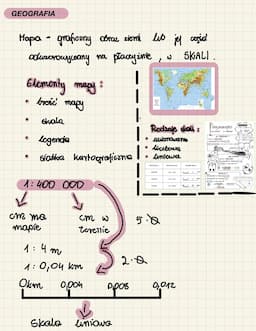 GEOGRAFIA
Mapa - graficzny obraz ziemi lub jej część
odwzorowujący na płaszczyźnie, w SKALI.
Elementy mapy :
• treść mapy
• skala
• legenda
• siatka kartograficzna
Rodzaje skali :
• mianowana
• liczbowa
• liniowa
1 : 400 000
cm na mapie
cm w terenie
5 · 0
1 : 4 m
1 : 0,04 km
2 · 0
0km 0,004 0,008 0,012
Skala liniowa